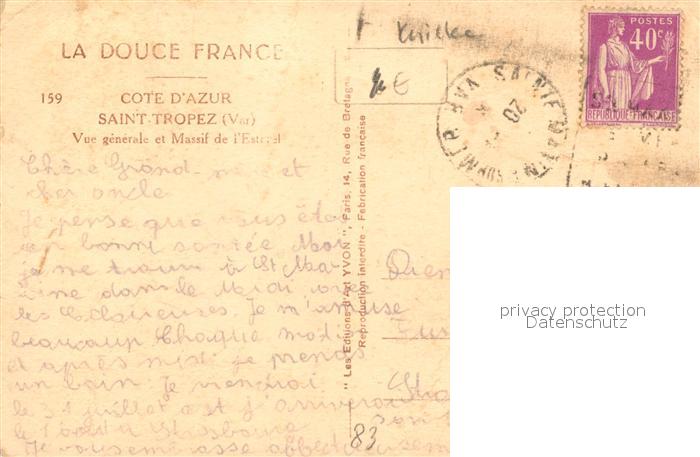 LA DOUCE FRANCE
159
COTE D'AZUR
SAINT-TROPEZ (Var)
Vue générale et Massif de l'Esterel
Knicke
€
POSTES
40c
REPUBLIQUE FRANÇAISE
VAR
20
"Les Editions d'Art YVON", Paris, 14, Rue de Bretagne
Reproduction interdite - Fabrication française
Chère Grand mère et
cher oncle
Je pense que vous êtes
en bonne santée Moi
je me trouve à St Max
ime dans le Midi avec
les Eclaireuses. Je m'amuse
beaucoup Chaque
et après midi je prends
un bain Je viendrai
le 31 juillet et j'arriverai
le 1 août à Strasbourg
Je vous embrasse affectueusement
83
privacy protection
Datenschutz